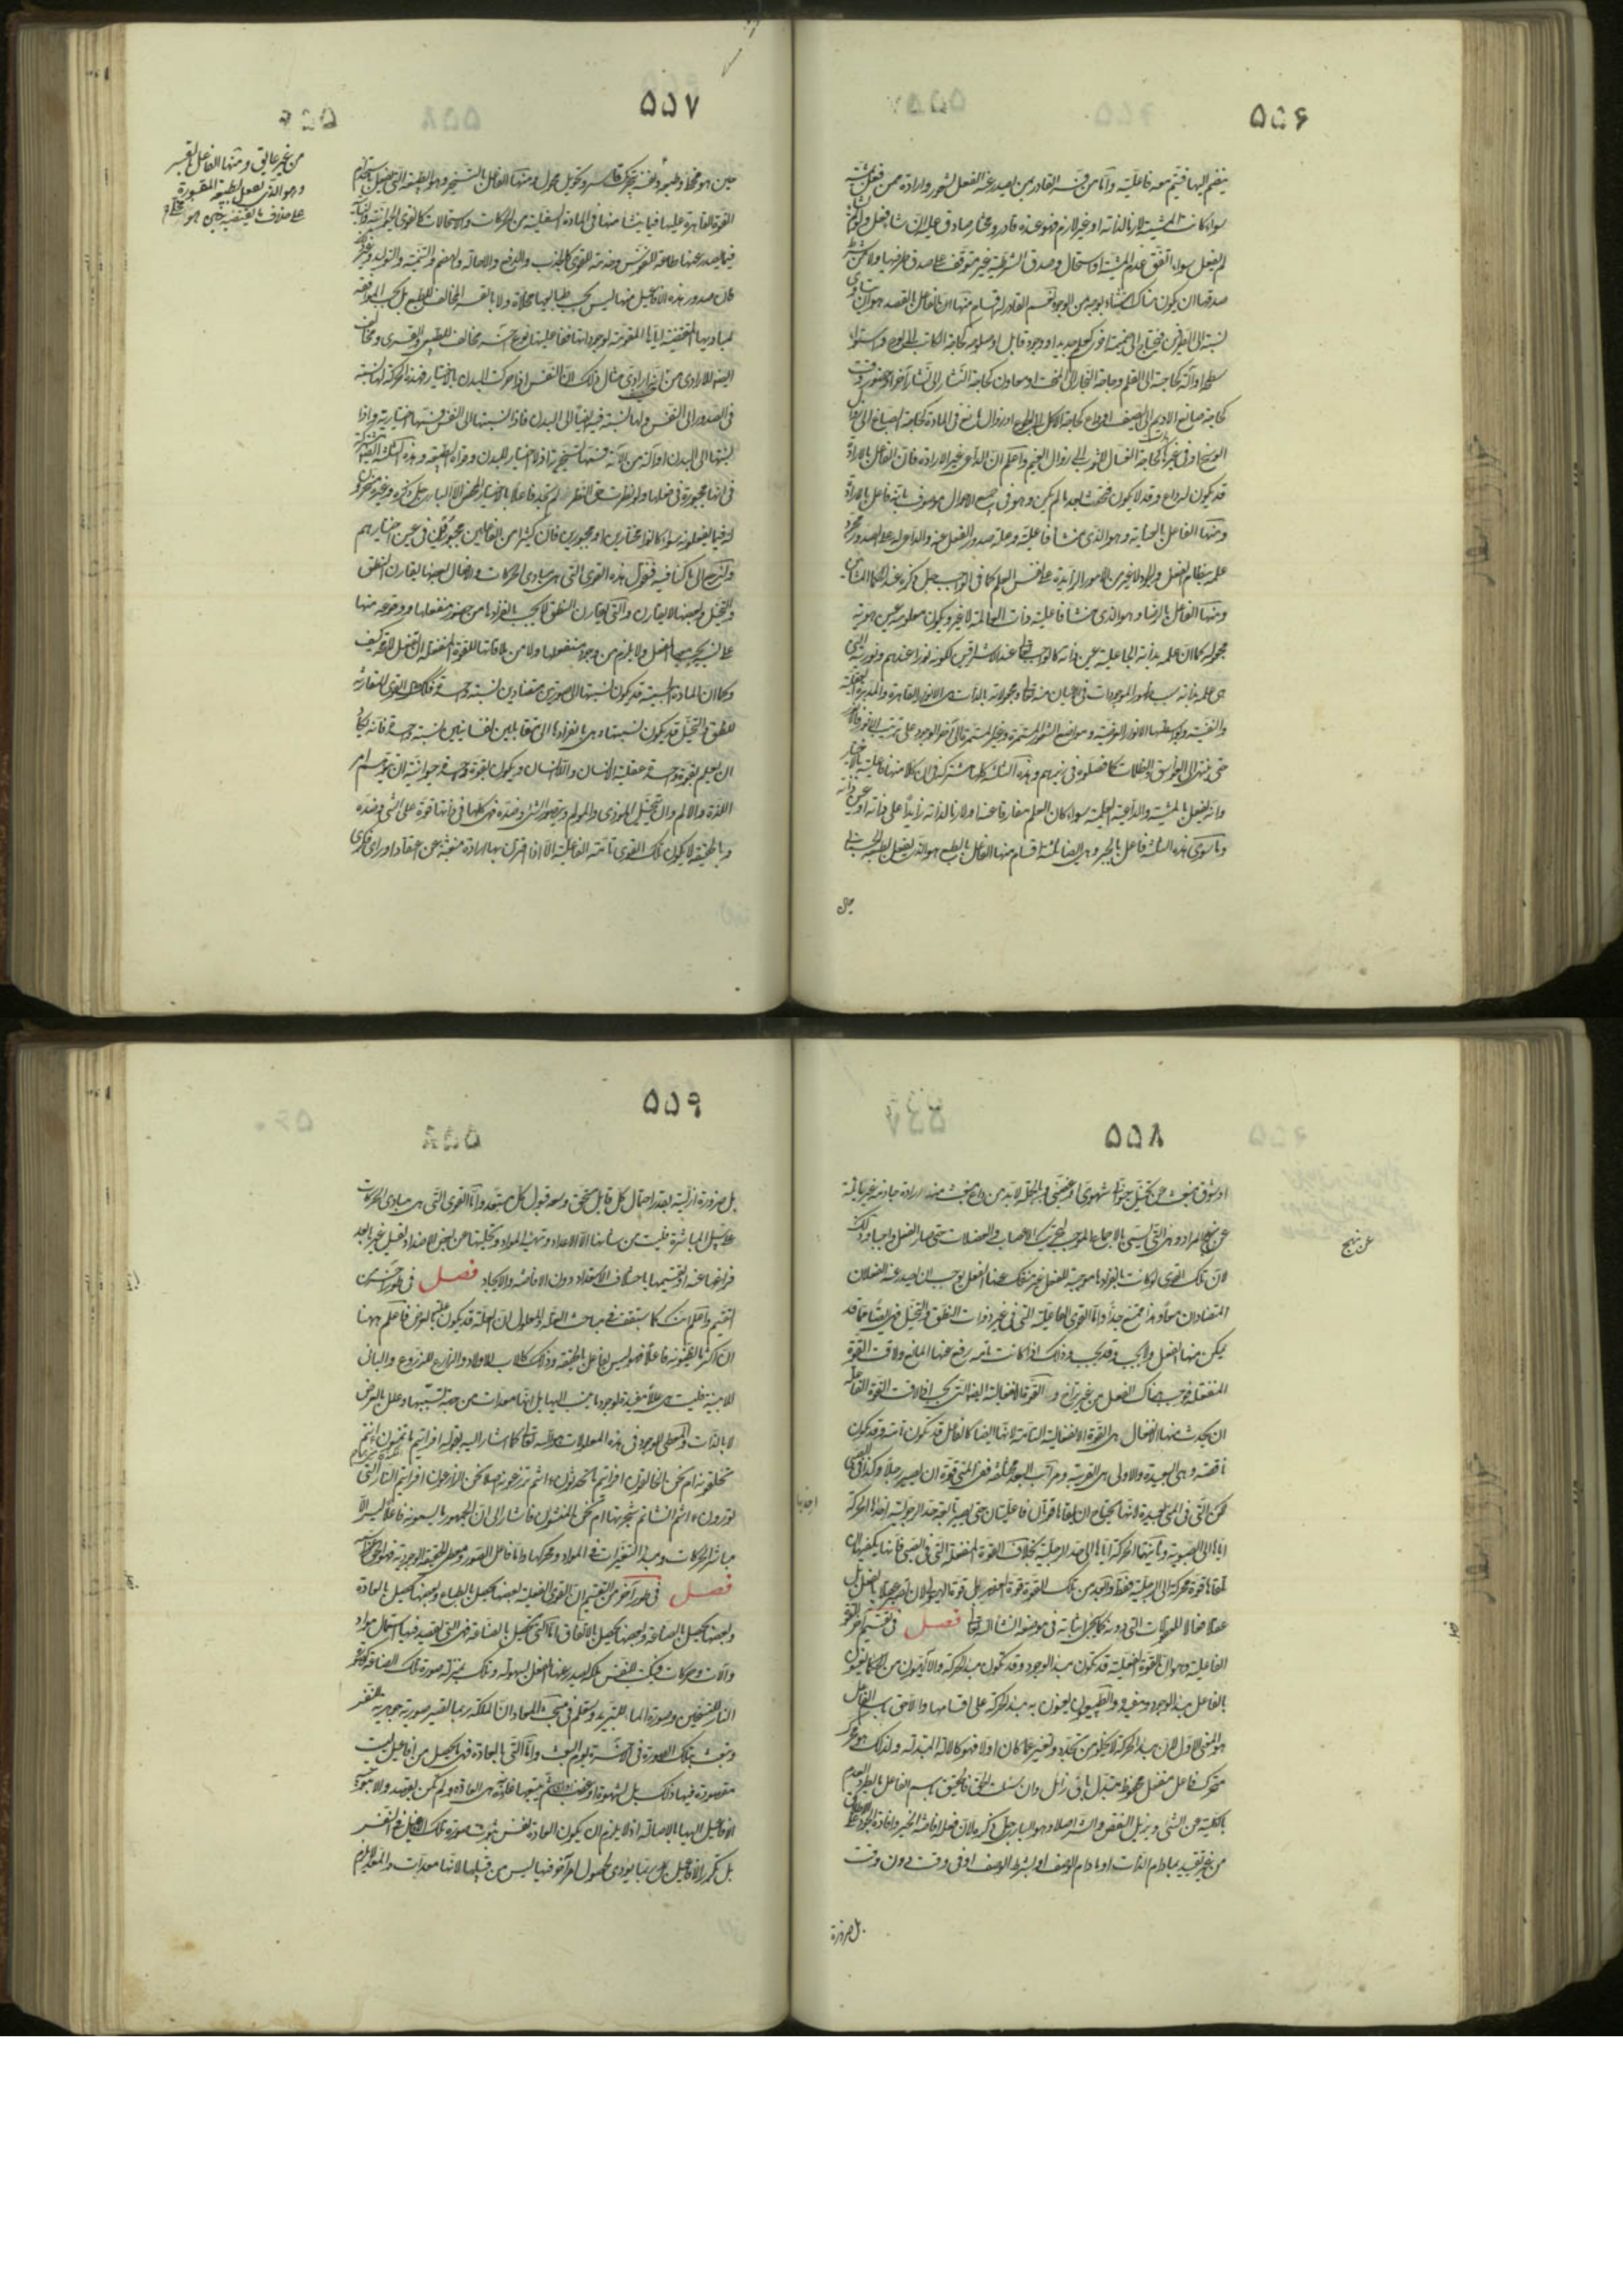 ۵۵۶
ينضم اليها فيتم معه فاعليته واما من قسم القادر من يصدر عنه الفعل بشعور وارادة فمن فعل بمشية
سواء كانت المشية لازما لذاته او غير لازم فهو عنده قادر ومختار صادق عليه ان شاء فعل وان لم يشأ
لم يفعل سواء اتفق عدم المشية او استحال وصدق الشرطية غير متوقف على صدق طرفيها ولا من شرط
صدقها ان يكون هناك استثناء بوجه من الوجوه ثم القادر له اقسام منها الفاعل بالقصد هو ان يتساوى
نسبته الى الطرفين فيحتاج الى ضميمة اخرى كعلم جديد او وجود قابل او صلوحه كحاجة الكاتب الى لوح واستواء
سطح او آلة كحاجته الى القلم وحاجة النجار الى المنحت او معاون كحاجة النشار الى نشار آخر او حضور وقت
كحاجة صانع الاديم الى الصيف او داع كحاجة الاكل الى الجوع او زوال مانع في المادة كحاجة الصباغ الى زوال
الوسخ او في غيرها كحاجة الغسال للثوب الى زوال الغيم واعلم ان الداعي غير الارادة فان الفاعل بالارادة
قد يكون له داع وقد لا يكون فحدث بعد ما لم يكن وهو في جميع الاحوال موصوف بانه فاعل بالارادة
ومنها الفاعل بالعناية وهو الذي منشأ فاعليته وعلة صدور الفعل عنه والداعي له على الصدور مجرد
علمه بنظام الفعل والجود لا غير من الامور الزايدة على نفس العلم كما في الواجب جل ذكره عند الحكماء المشائين
ومنها الفاعل بالرضا وهو الذي منشأ فاعليته ذات العالمة لا غير ويكون معلومه عين هوية
مجعوله كما ان علمه بذاته الجاعلية عين ذاته كالواجب تعالى عند الاشراقيين لكونه نورا عندهم ونوريته التي
هي علمه بذاته سبب ظهور الموجودات في الاعيان منه تعالى ومجعولاته بالذات هي الانوار القاهرة والمدبرة العقلية
والنفسية وبواسطتها الانوار العرضية ومواضع الشعور المستمرة وغير المستمرة الى آخر الوجود على ترتيب الانور فالانور
حتى ينتهي الى الغواسق والظلمات كما فصلوه في زبرهم وهذه الثلثة كلها مشترك في ان كلا منها فاعليته بالاختيار
وانه يفعل بالمشية والداعية العلمية سواء كان العلم مفارقا عنه او لازما لذاته زايدا على ذاته او عين ذاته
وما سوى هذه الثلثة فاعل بالجبر وهي ايضا ثلثة اقسام منها الفاعل بالطبع هو الذي يفعل بطبعه الجسماني
حين
۵۵۷
حين هو مخلا وطبعه ومنه بتحريك قاسر وتحويل محول ومنها الفاعل بالتسخير وهو الطبيعة التي تفعل باستخدام
القوة القاهرة عليها فيما ينشأ منها في المادة السفلية من الحركات والاستحالات كالقوى الحيوانية والنباتية
فيما يصدر عنها طاعة للنفوس وخدمة للقوى كالجذب والدفع والاحالة والهضم والتنمية والتوليد وغيرها
فان صدور هذه الافاعيل منها ليس بحسب طبايعها مخلاة ولا بالقسر المخالف للطبع بل بحسب الموافقة
لمباديها المقتضية اياها المقومة لوجودها ففاعليتها نوع آخر مخالف للطبيعي والقسري ومخالف
ايضا للارادي مثال ذلك ان النفس اذا حركت البدن بالاختيار فهذه الحركة لها نسبة
في الصدور الى النفس ولها نسبة فيه ايضا الى البدن فاذا نسبتها الى النفس فسمها اختيارية واذا
نسبتها الى البدن او آلة من آلاته فسمها تسخيرية اذ لا اختيار للبدن وقواه الطبيعية وهذه الثلثة ايضا مشتركة
في انها مجبورة في فعلها ولو نظرت حق النظر لم تجد فاعلا بالاختيار المحض الا الباري جل ذكره وغيره مسخرون
له فيما يفعلونه سواء كانوا مختارين او مجبورين فان كثيرا من الفاعلين مجبورون في عين اختيارهم
ولترجع الى ما كنا فيه فنقول هذه القوى التي هي مبادي الحركات والافعال بعضها يقارن النطق
والتخيل وبعضها لا يقارن والتي يقارن النطق لا يجب بانفرادها من حضور منفعلها ووقوعه منها
على نسبة يجب معها الفعل ولا يلزم من وجود منفعلها ولا من ملاقاتها للقوة المنفعلة ان تفعل لا محة كيف
وكما ان المادة الجسمية قد يكون نسبتها الى صورتين متضادتين نسبة واحدة فكذلك القوى المقارنة
للنطق والتخيل قد يكون نسبتها وحدها بانفرادها الى متقابلين نفسانيين نسبة واحدة فانه يكاد
ان يعلم بقوة واحدة عقلية الانسان واللاانسان ويكون لقوة واحدة حيوانية ان يتوهم امر
اللذة والالم وان تتخيل الموذي والمولم ويتصور الشيء وضده فهي كلها في ذاتها قوة على الشي وضده
وبالحقيقة لا يكون تلك القوى تامة الفاعلية الا اذا اقترن بها ارادة منبعثة عن اعتقاد او راي فكري
من غير عايق ومنها الفاعل بالقسر
وهو الذي يفعل بطبيعته المقسورة
على خلاف ما يقتضيه حين هو مخلاة
۵۵۸
او شوق منبعث عن تخيل حيواني شهوي او غضبي وبالجملة لا بد من داع ينبعث منه ارادة جازمة غير مائلة
عن نهج المراد وهي التي تسمى بالاجماع الموجب لتحريك الاعصاب والعضلات حتى صار الفعل واجبا وذلك
لان تلك القوى لو كانت بانفرادها موجبة للفعل غير منفك عنها الفعل لوجب ان يصدر عنه الفعلان
المتضادان معا وهذا ممتنع جدا واما القوى الفاعلية التي في غير ذوات النطق والتخيل فهي ايضا مما قد
يمكن منها الفعل ولا يجب وقد يجب وذلك اذا كانت تامة رفع عنها المانع ولاقت القوة
المنفعلة فوجب هناك الفعل من غير تراخ و القوة الانفعالية ايضا التي يجب اذا لاقت القوة الفاعلة
ان يحدث منها الانفعال هي القوة الانفعالية التامة لانها ايضا كالفاعل قد تكون تامة وقد تكون
ناقصة وهي البعيدة والاولى هي القريبة ومراتب البعد مختلفة ففي المني قوة ان يصير رجلا وكذا في الصبي
لكن التي في المني بعيدة لانها تحتاج ان يلقاها محركان فاعليتان حتى يصير بالقوة حد الرجولية احديها المحركة
اياها الى الصبوية وثانيتها المحركة اياها الى حد الرجلية بخلاف القوة المنفعلة التي في الصبي فانها يكفيها ان
تلقاها قوة محركة الى الرجلية فقط وابعد من تلك القوة قوة العنصر بل قوة الهيولى لان تصير عقلا بالفعل بل
عقلا فعالا للمعقولات التي دونه كما يجيء اثباته في موضعه انشاء الله تعالى فصل في تقسيم آخر للقوة
الفاعلية وهو ان القوة الفعلية قد تكون مبدأ الوجود وقد تكون مبدأ الحركة والآلهيون من الحكماء يعنون
بالفاعل مبدأ الوجود ومفيده والطبيعيون يعنون به مبدأ الحركة على اقسامها والاحق باسم الفاعل
هو المعنى الاول لان مبدأ الحركة لا يخلو من تجدد وتغير عما كان اولا فهو كالآلة المتبدلة ولذلك هو محرك
متحرك فاعل منفعل محفوظ متبدل باق زائل وان سئلت الحق فالحقيق باسم الفاعل من يطرد العدم
بالكلية عن الشي ويزيل النقص والشر اصلا وهو الباري جل ذكره لان فعله افاضة الخير وافادة الوجود على الاطلاق
من غير تقييد بمادام الذات او مادام الوصف او بشرط الوصف او في وقت دون وقت
عن نهج
بل ضرورة
۵۵۹
بل ضرورة ازلية بقدر احتمال كل قابل مستحق وسعة قبول كل مستعد واما القوى التي هي مبادي الحركات
على سبيل المباشرة فليست من شانها الا الاعداد وتهيئة المواد وتخليتها عن بعض الاضداد لقبول غيره بعد
فراغها عنه او تقسيمها باختلاف الاستعداد دون الافاضة والايجاد فصل في طور آخر من
التقسيم واعلم انك كما ستقف في مباحث العلة والمعلول ان العلة قد يكون علة بالعرض فاعلم ههنا
ان اكثر ما يظنونه فاعلا فهو ليس بفاعل بالحقيقة وذلك كالاب للاولاد والزارع للزروع والبانى
للابنية فليست هي عللا مفيدة لوجود ما ينسب اليها بل انها معدات من جهة تسببها وعلل بالعرض
لا بالذات والمعطي للوجود في هذه المعلولات هو الله تعالى كما اشار اليه بقوله افرايتم ما تمنون ءانتم
تخلقونه ام نحن الخالقون افرايتم ما تحرثون ءانتم تزرعونه ام نحن الزارعون افرايتم النار التي
تورون ءانتم انشاتم شجرتها ام نحن المنشئون فاشار الى ان الجمهور ما يسمونه فاعلا ليس الا
مباشر الحركات ومبدأ التغيرات في المواد ومحركها واما فاعل الصور ومعطي الحقيقة الوجودية فهو الحق تعالى
فصل في طور آخر من التقسيم ان القوى الفعلية بعضها يحصل بالطباع وبعضها يحصل بالعادة
وبعضها يحصل بالصناعة وبعضها يحصل بالاتفاق اما التي تحصل بالصناعة فهي التي يقصد فيها استعمال مواد
وآلات وحركات فيكتسب النفس ملكة يصدر عنها الفعل بسهولة وتلك بمنزلة صورة تلك الصناعة كما
النار للتسخين وصورة الماء للتبريد وستعلم في مبحث المعاد ان الملكة ربما تصير صورة جوهرية للنفس
وتبعث بتلك الصورة في الآخرة يوم البعث واما التي بالعادة فهي ما يحصل من افاعيل ليست
مقصودة فيها ذلك بل لشهوة او غضب او راي ثم يتبعها غاية هي العادة ولم يكن بقصد ولا يتوجه
الافاعيل اليها بالاصالة اذ لا يلزم ان يكون العادة نفس ثبوت صورة تلك الافاعيل في النفس
بل تكرر الافاعيل ربما يودى لحصول امر آخر فيها ليس من قبيلها لانها معدات والمعد لا يلزم